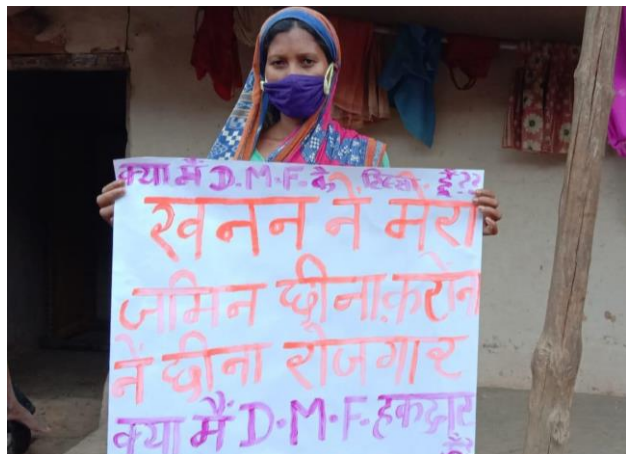 क्या मैं D.M.F. के, हिस्सा हूँ??
खनन ने मेरा
जमिन छीना, करोना
नें छीना रोजगार
क्या मैं D.M.F. हकदार